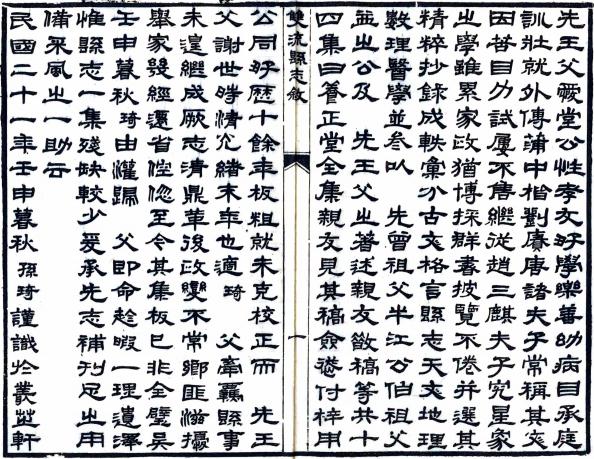 先王父厥堂公性孝友好學樂善幼病目承庭
訓壯就外傅蒲中楷劉賡唐諸夫子常稱其文
因昔目力試屢不售繼從趙三麒夫子究星家
之學雖累家政猶博採群書披覽不倦并選其
精粹抄錄成帙彙分古文格言縣志天文地理
數理醫學並叅以　先曾祖父半江公伯祖父
益之公及　先王父之著述親友敘稿等共十
四集曰養正堂全集親友見其稿僉慫付梓用
雙流縣志敘
一
公同好歷十餘年板粗就未克校正而　先王
父謝世時清光緒末年也適琦　父牽羈縣事
未遑繼成厥志清鼎革後政變不常鄉匪滋擾
舉家發經還省倥傯至令其集板已非全璧吳
壬申暮秋琦由灌歸　父即命趁暇一理遺澤
惟縣志一集殘缺較少爰承先志補刊足之用
備采風之一助云
民國二十一年壬申暮秋孫琦謹識於叢芝軒